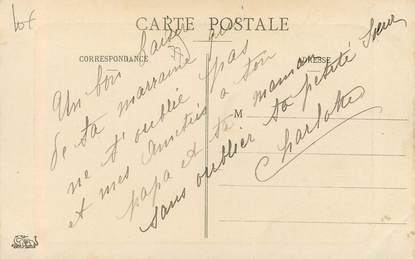 CARTE POSTALE
CORRESPONDANCE
ADRESSE
M
Un bon baiser
de ta marraine qui
ne t'oublie pas
et mes amitiés à ton
papa et ta maman
sans oublier ta petite sœur
Charlotte